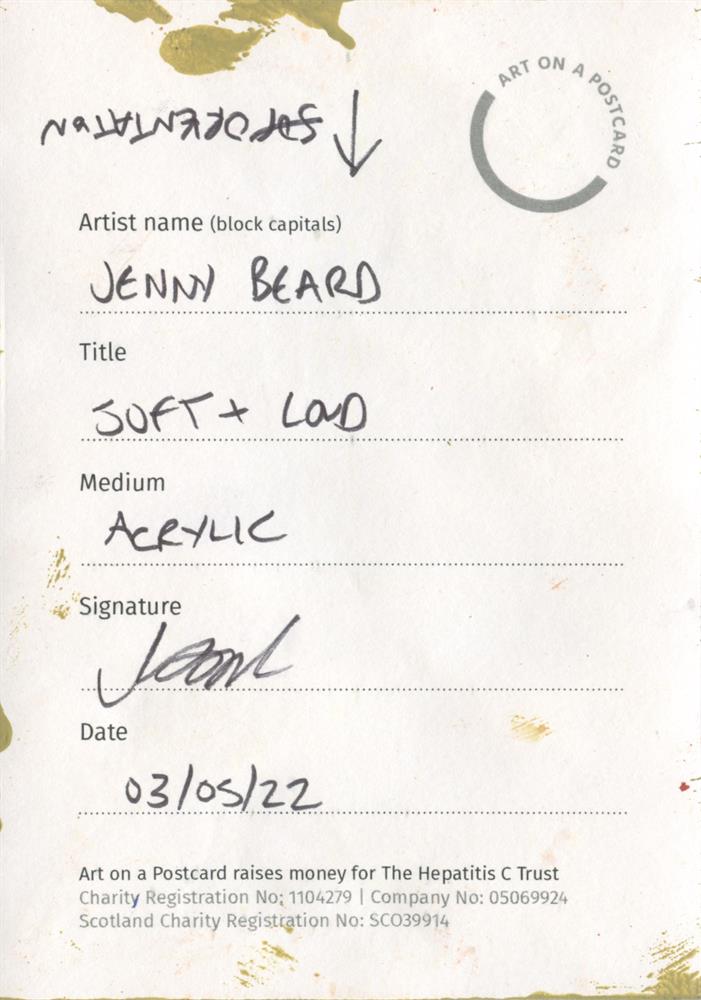 ART ON A POSTCARD
Artist name (block capitals)
JENNY BEARD
Title
SOFT + LOUD
Medium
ACRYLIC
Signature
Date
03/05/22
Art on a Postcard raises money for The Hepatitis C Trust
Charity Registration No: 1104279 | Company No: 05069924
Scotland Charity Registration No: SCO39914